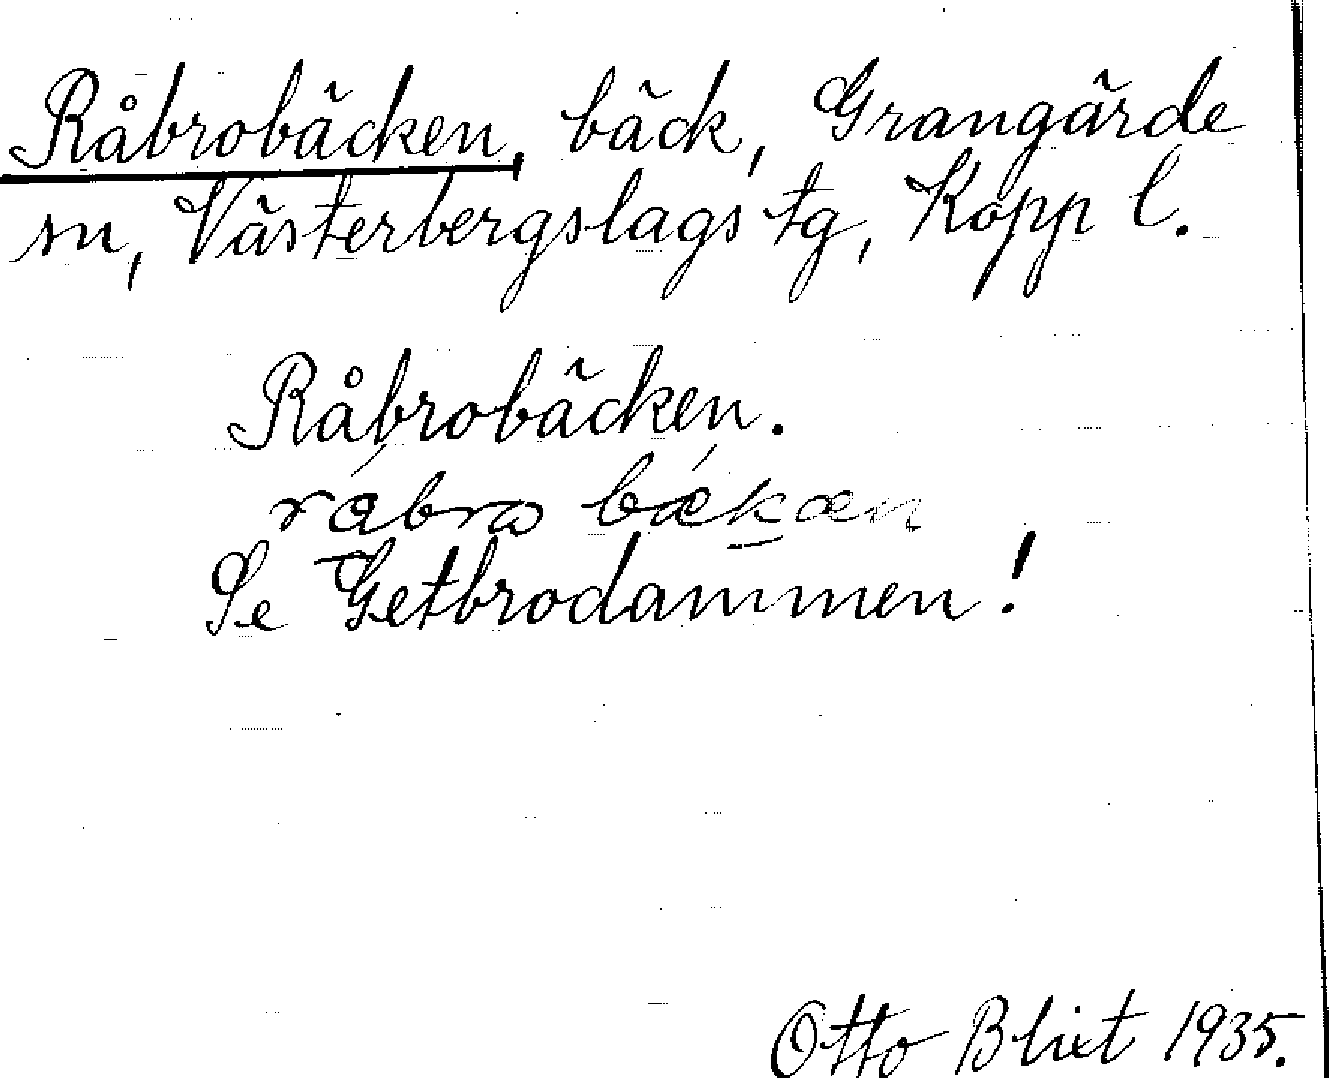 Råbrobäcken, bäck, Grangärde
sn, Västerbergslags tg, Kopp l.
Råbrobäcken.
råbro bækæn
Se Getbrodammen!
Otto Blixt 1935.